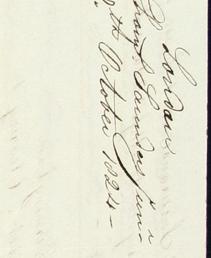 London,
From Saunders Junr
th October 1824 –